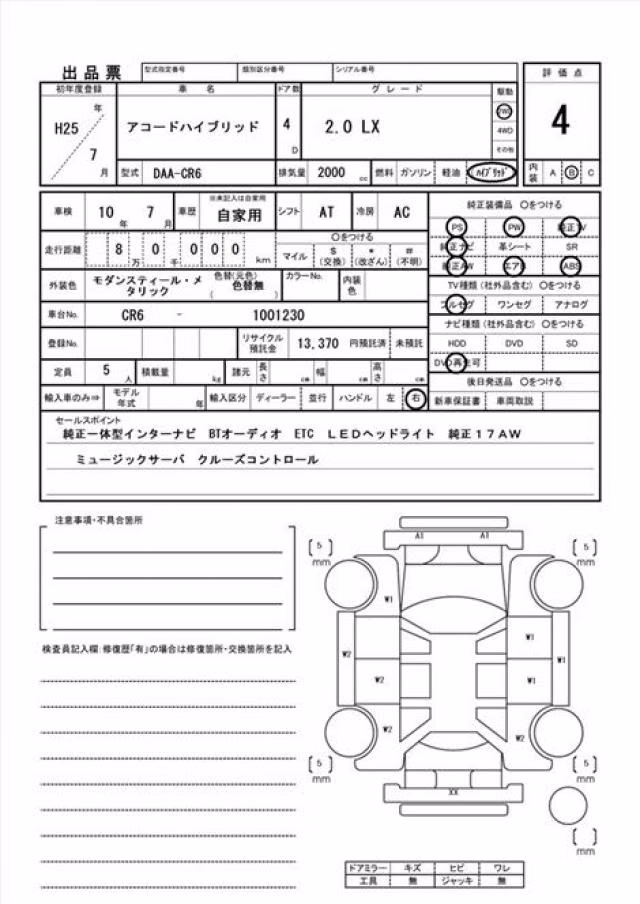 出品票 型式指定番号 類別区分番号 シリアル番号
初年度登録 車名 ドア数 グレード 駆動 評価点
H25 年 7 月 アコードハイブリッド 4 D 2.0 LX 2WD 4WD その他 4
型式 DAA-CR6 排気量 2000 cc 燃料 ガソリン 軽油 ハイブリッド 内装 A B C
車検 10 年 7 月 車歴 ※未記入は自家用 自家用 シフト AT 冷房 AC
純正装備品 〇をつける
PS PW 純正TV
純正ナビ 革シート SR
純正AW エアB ABS
走行距離 8 万 0 千 0 0 0 km 〇をつける マイル $ (交換) * (改ざん) # (不明)
TV種類(社外品含む) 〇をつける
フルセグ ワンセグ アナログ
外装色 モダンスティール・メタリック 色替(元色) ( 色替無 ) カラーNo. 内装色
車台No. CR6 - 1001230
ナビ種類(社外品含む) 〇をつける
HDD DVD SD
DVD再生可
登録No. リサイクル預託金 13,370 円預託済 未預託
定員 5 人 積載量 kg 諸元 長さ cm 幅 cm 高さ cm
後日発送品 〇をつける
新車保証書 車両取説
輸入車のみ⇒ モデル年式 年 輸入区分 ディーラー 並行 ハンドル 左 右
セールスポイント
純正一体型インターナビ BTオーディオ ETC LEDヘッドライト 純正17AW
ミュージックサーバ クルーズコントロール
注意事項・不具合箇所
検査員記入欄:修復歴「有」の場合は修復箇所・交換箇所を記入
A1 A1
[5] mm [5] mm
W1
W1
W2 W1
W2 W1
W2 W2
[5] mm [5] mm
XX
[ ] mm
ドアミラー キズ ヒビ ワレ
工具 無 ジャッキ 無